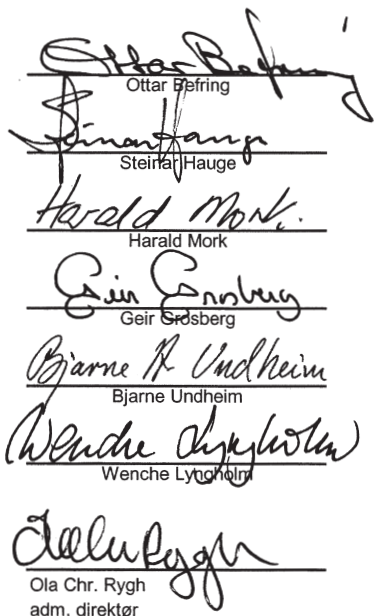 Ottar Befring
Ottar Befring
Steinar Hauge
Steinar Hauge
Harald Mork.
Harald Mork
Geir Grosberg
Geir Grosberg
Bjarne A Undheim
Bjarne Undheim
Wenche Lyngholm
Wenche Lyngholm
Rygh
Ola Chr. Rygh
adm. direktør